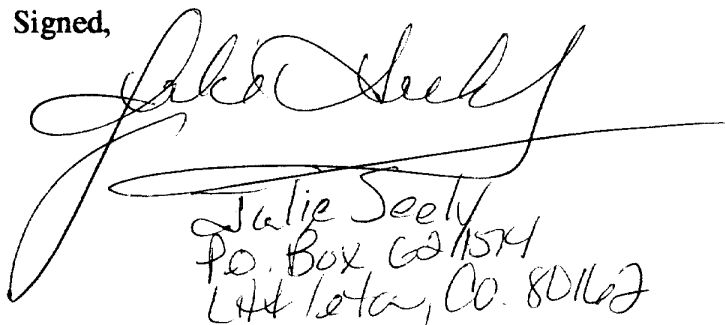 Signed,
Julie Seely
Julie Seely
P.O. Box 621574
Littleton, Co. 80162